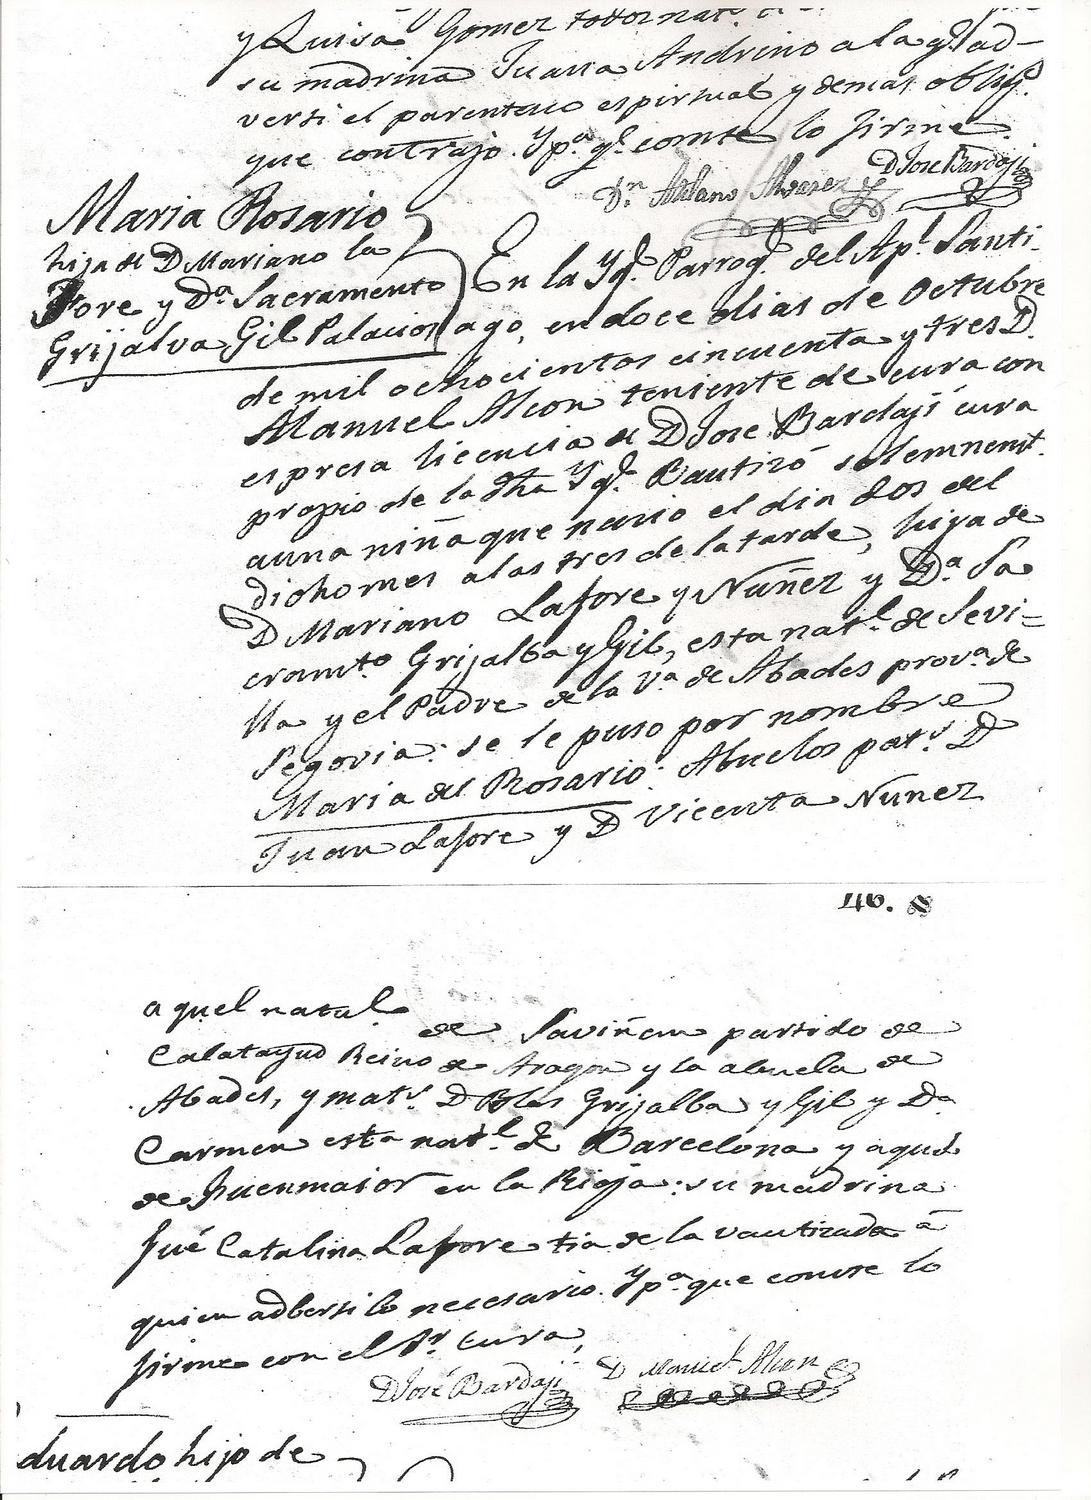 y Luisa Gomez todos nat.
su madrina Juana Andrino a la q.e ad-
verti el parentesco espiritual y demas oblig.
que contrajo. Y p.a q.e conste lo firme.
D.n Atilano Alvarez D Jose Bardaji
Maria Rosario
hija de D Mariano la
Fore y D.a Sacramento
Grijalva Gil Palacios
En la Yg.a Parroq.l del Ap.l Santi-
ago, en doce dias de Octubre
de mil ochocientos cincuenta y tres D.
Manuel Alcon teniente de cura con
espresa licencia de D Jose Bardaji cura
propio de la dha Yg.a Bautizó solemnemt.
a una niña que nacio el dia dos del
dicho mes a las tres de la tarde, hija de
D Mariano Lafore y Nuñez y D.a Sa
cramto Grijalba y Gil, esta nat.l de Sevi-
lla y el Padre de la V.a de Abades prov.a de
Segovia: se le puso por nombre
Maria del Rosario: Abuelos pat.s D
Juan Lafore y D Vicenta Nuñez
aquel natul.
de Saviñan partido de
Calatayud Reino de Aragon y la abuela de
Abades, y mat.s D Blas Grijalba y Gil y D.a
Carmen esta nat.l de Barcelona y aquel
de Fuenmaior en la Rioja: su madrina
fué Catalina Lafore tia de la vautizada á
quien adberti lo necesario. Y p.a que conste lo
firme con el S.r cura,
D José Bardaji D Manuel Alcon
duardo hijo de